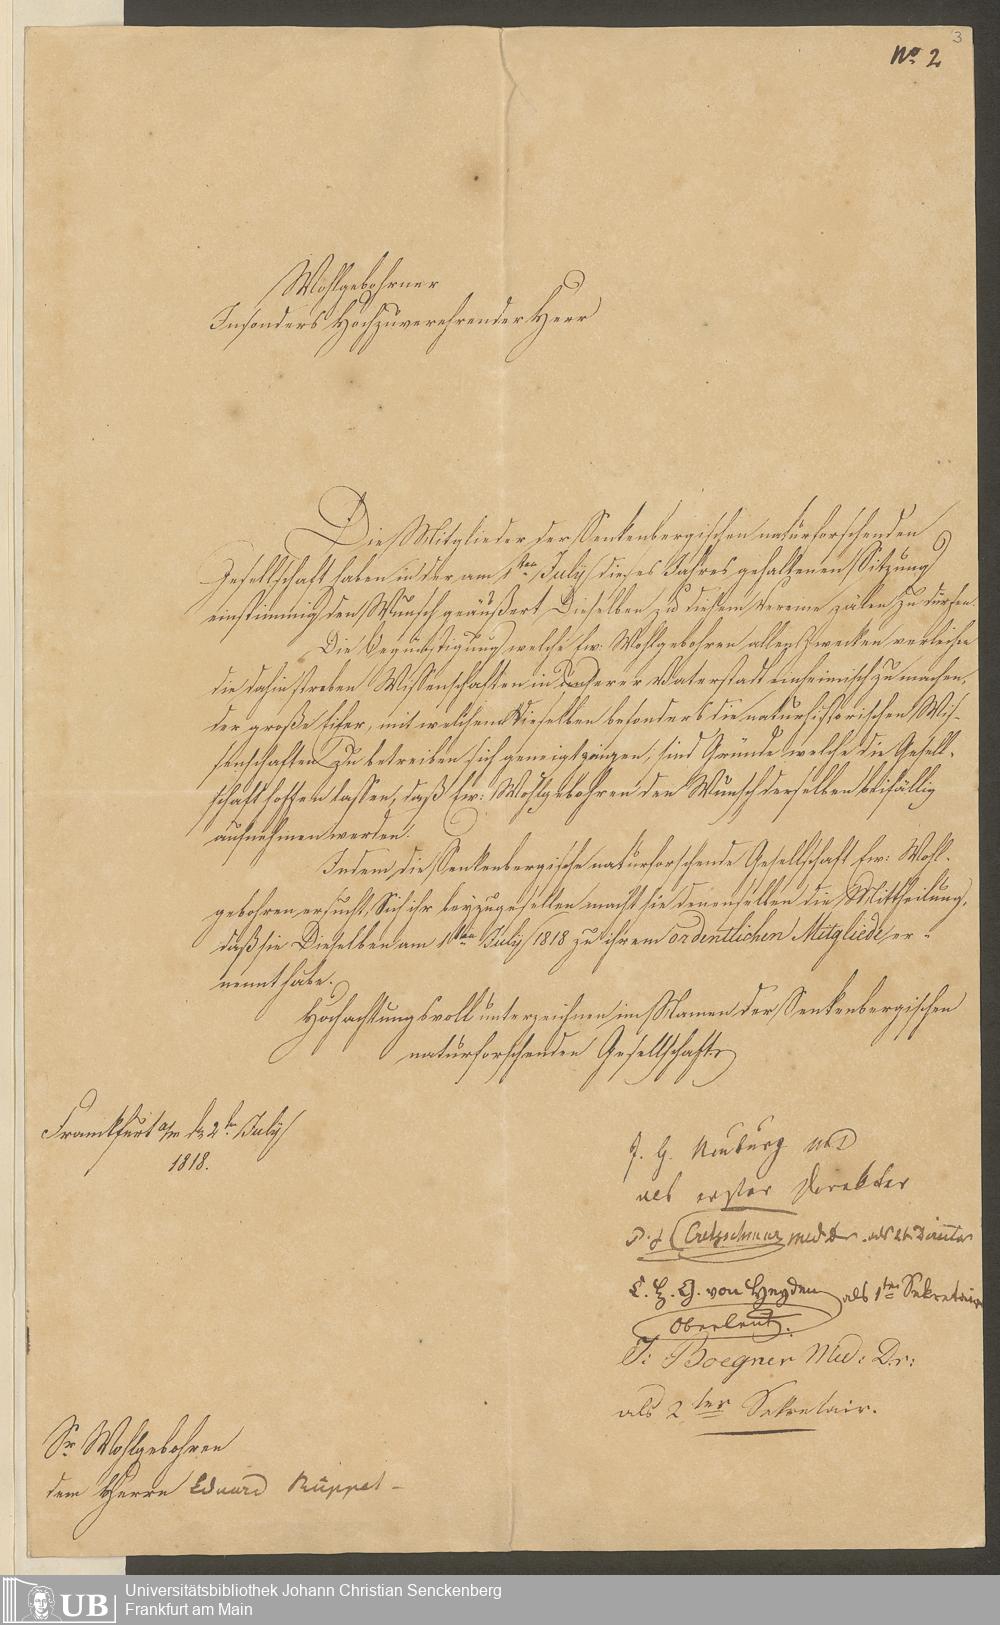 3
No. 2
Wohlgebohrner
Insonders Hochzuverehrender Herr
Die Mitglieder der Senkenbergischen naturforschenden
Gesellschaft haben in der am 1ten July dieses Jahres gehaltenen Sitzung
einstimmig den Wunsch geäußert Dieselben zu diesem Vereine zälen zu dürfen.
Die Begünstigung welche Ew: Wohlgebohren allen Zwecken verleihen
die dahin streben Wissenschaften in unserer Vaterstadt einheimisch zu machen,
der große Eifer, mit welchem Dieselben besonders die naturhistorischen Wis-
senschaften zu betreiben sich geneigt zeigen, sind Gründe welche die Gesell-
schaft hoffen lassen, daß Ew: Wohlgebohren den Wunsch derselben beifällig
aufnehmen werden.
Indem die Senkenbergische naturforschende Gesellschaft Ew: Wohl-
gebohren ersucht, Sich ihr beyzugesellen macht sie denenselben die Mittheilung,
daß sie Dieselben am 1ten July 1818 zu ihrem ordentlichen Mitgliede er-
nennt habe.
Hochachtungsvoll unterzeichnen im Namen der Senkenbergischen
naturforschenden Gesellschaft
Frankfurt a/m d. 2tn July
1818.
J. G. Neuburg MD
als erster Direktor
P. J. Cretzschmar med. Dr. als 2t Director
C. H. G. von Heyden als 1ter Sekretair
Oberleut.
J: Boegner Med: Dr:
als 2ter Sekretair.
Sr Wohlgebohren
dem Herrn Eduard Rüppel
UB
Universitätsbibliothek Johann Christian Senckenberg
Frankfurt am Main